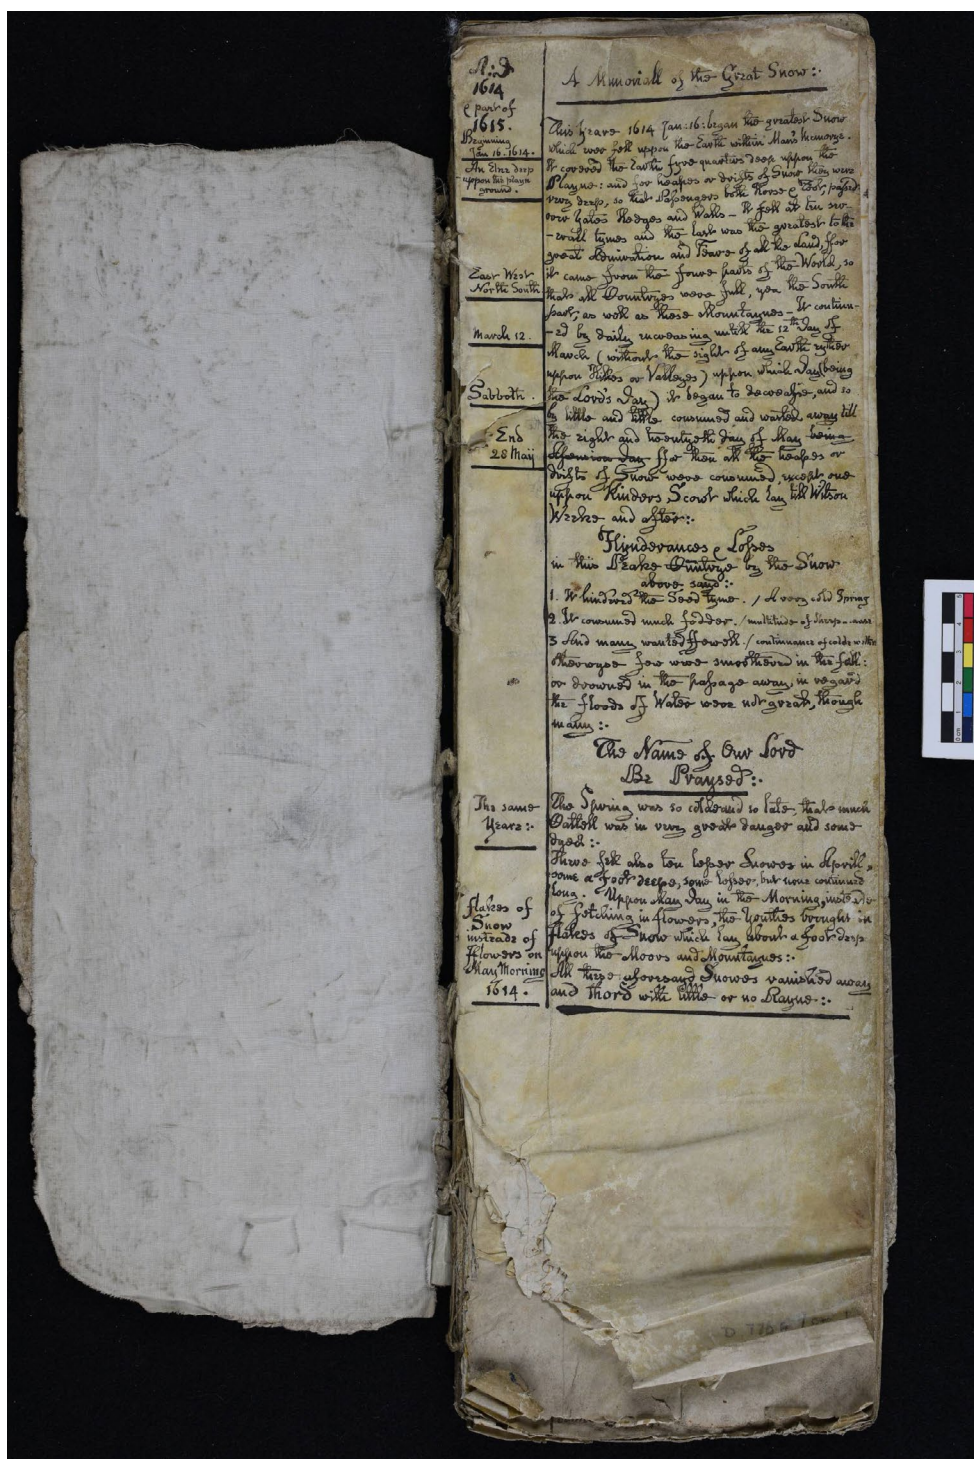 A Memoriall of the Great Snow:.
A:D
1614
& part of
1615.
Beginning
Jan 16. 1614.
An Elne deep
uppon the playn
ground.
This Yeare 1614 Jan: 16: began the greatest Snow
which ever fell uppon the Earth within Man's Memorye.
It covered the Earth fyve quarters deep uppon the
Playne: and for heapes or drifts of Snow they were
very deep, so that Passengers both Horse & Foot, passed
over Yates Hedges and Walls - It fell at ten sev-
-erall tymes and the last was the greatest to the
great Admiration and Feare of all the Land, for
it came from the foure parts of the World, so
that all Countryes were full, yea the South
part, as well as these Mountaynes - It continu-
-ed by daily encreasing untill the 12th Day of
March (without the sight of any Earth eyther
uppon Hilles or Valleyes) uppon which Day (being
the Lord's Day) it began to decrease, and so
by little and little consumed and wasted away till
the eight and twentyeth day of May being
Ascension Day ffor then all the heapes or
drifts of Snow were consumed, except one
uppon Kinders Scowt which lay till Witson
Weeke and after:.
East West
North South
March 12.
Sabboth.
End
28 Maij
Hynderances & Losses
in this Peake Countrye by the Snow
above sayd:.
1. It hindred the Seed tyme. / A very cold Spring
2. It consumed much fodder. / multitude of sheep
3 And many wanted ffewell. / continuance of colde
otherwyse few were smothered in the fall:
or drowned in the passage away, in regard
the floods of Water were not great, though
many:.
The Name of Our Lord
Be Praysed:.
The same
Yeare:.
The Spring was so colde and so late, that much
Cattell was in very great danger and some
dyed:.
There fell also ten lesser Snowes in Aprill,
some a foot deepe, some lesser, but none continued
long. Uppon May Day in the Morning, insteade
of fetching in flowers, the Youthes brought in
flakes of Snow which lay about a foot deep
uppon the Moors and Mountaynes:.
All these aforesayd Snowes vanished away
and thor'd with little or no Rayne:.
flakes of
Snow
insteade of
flowers on
May Morning
1614.